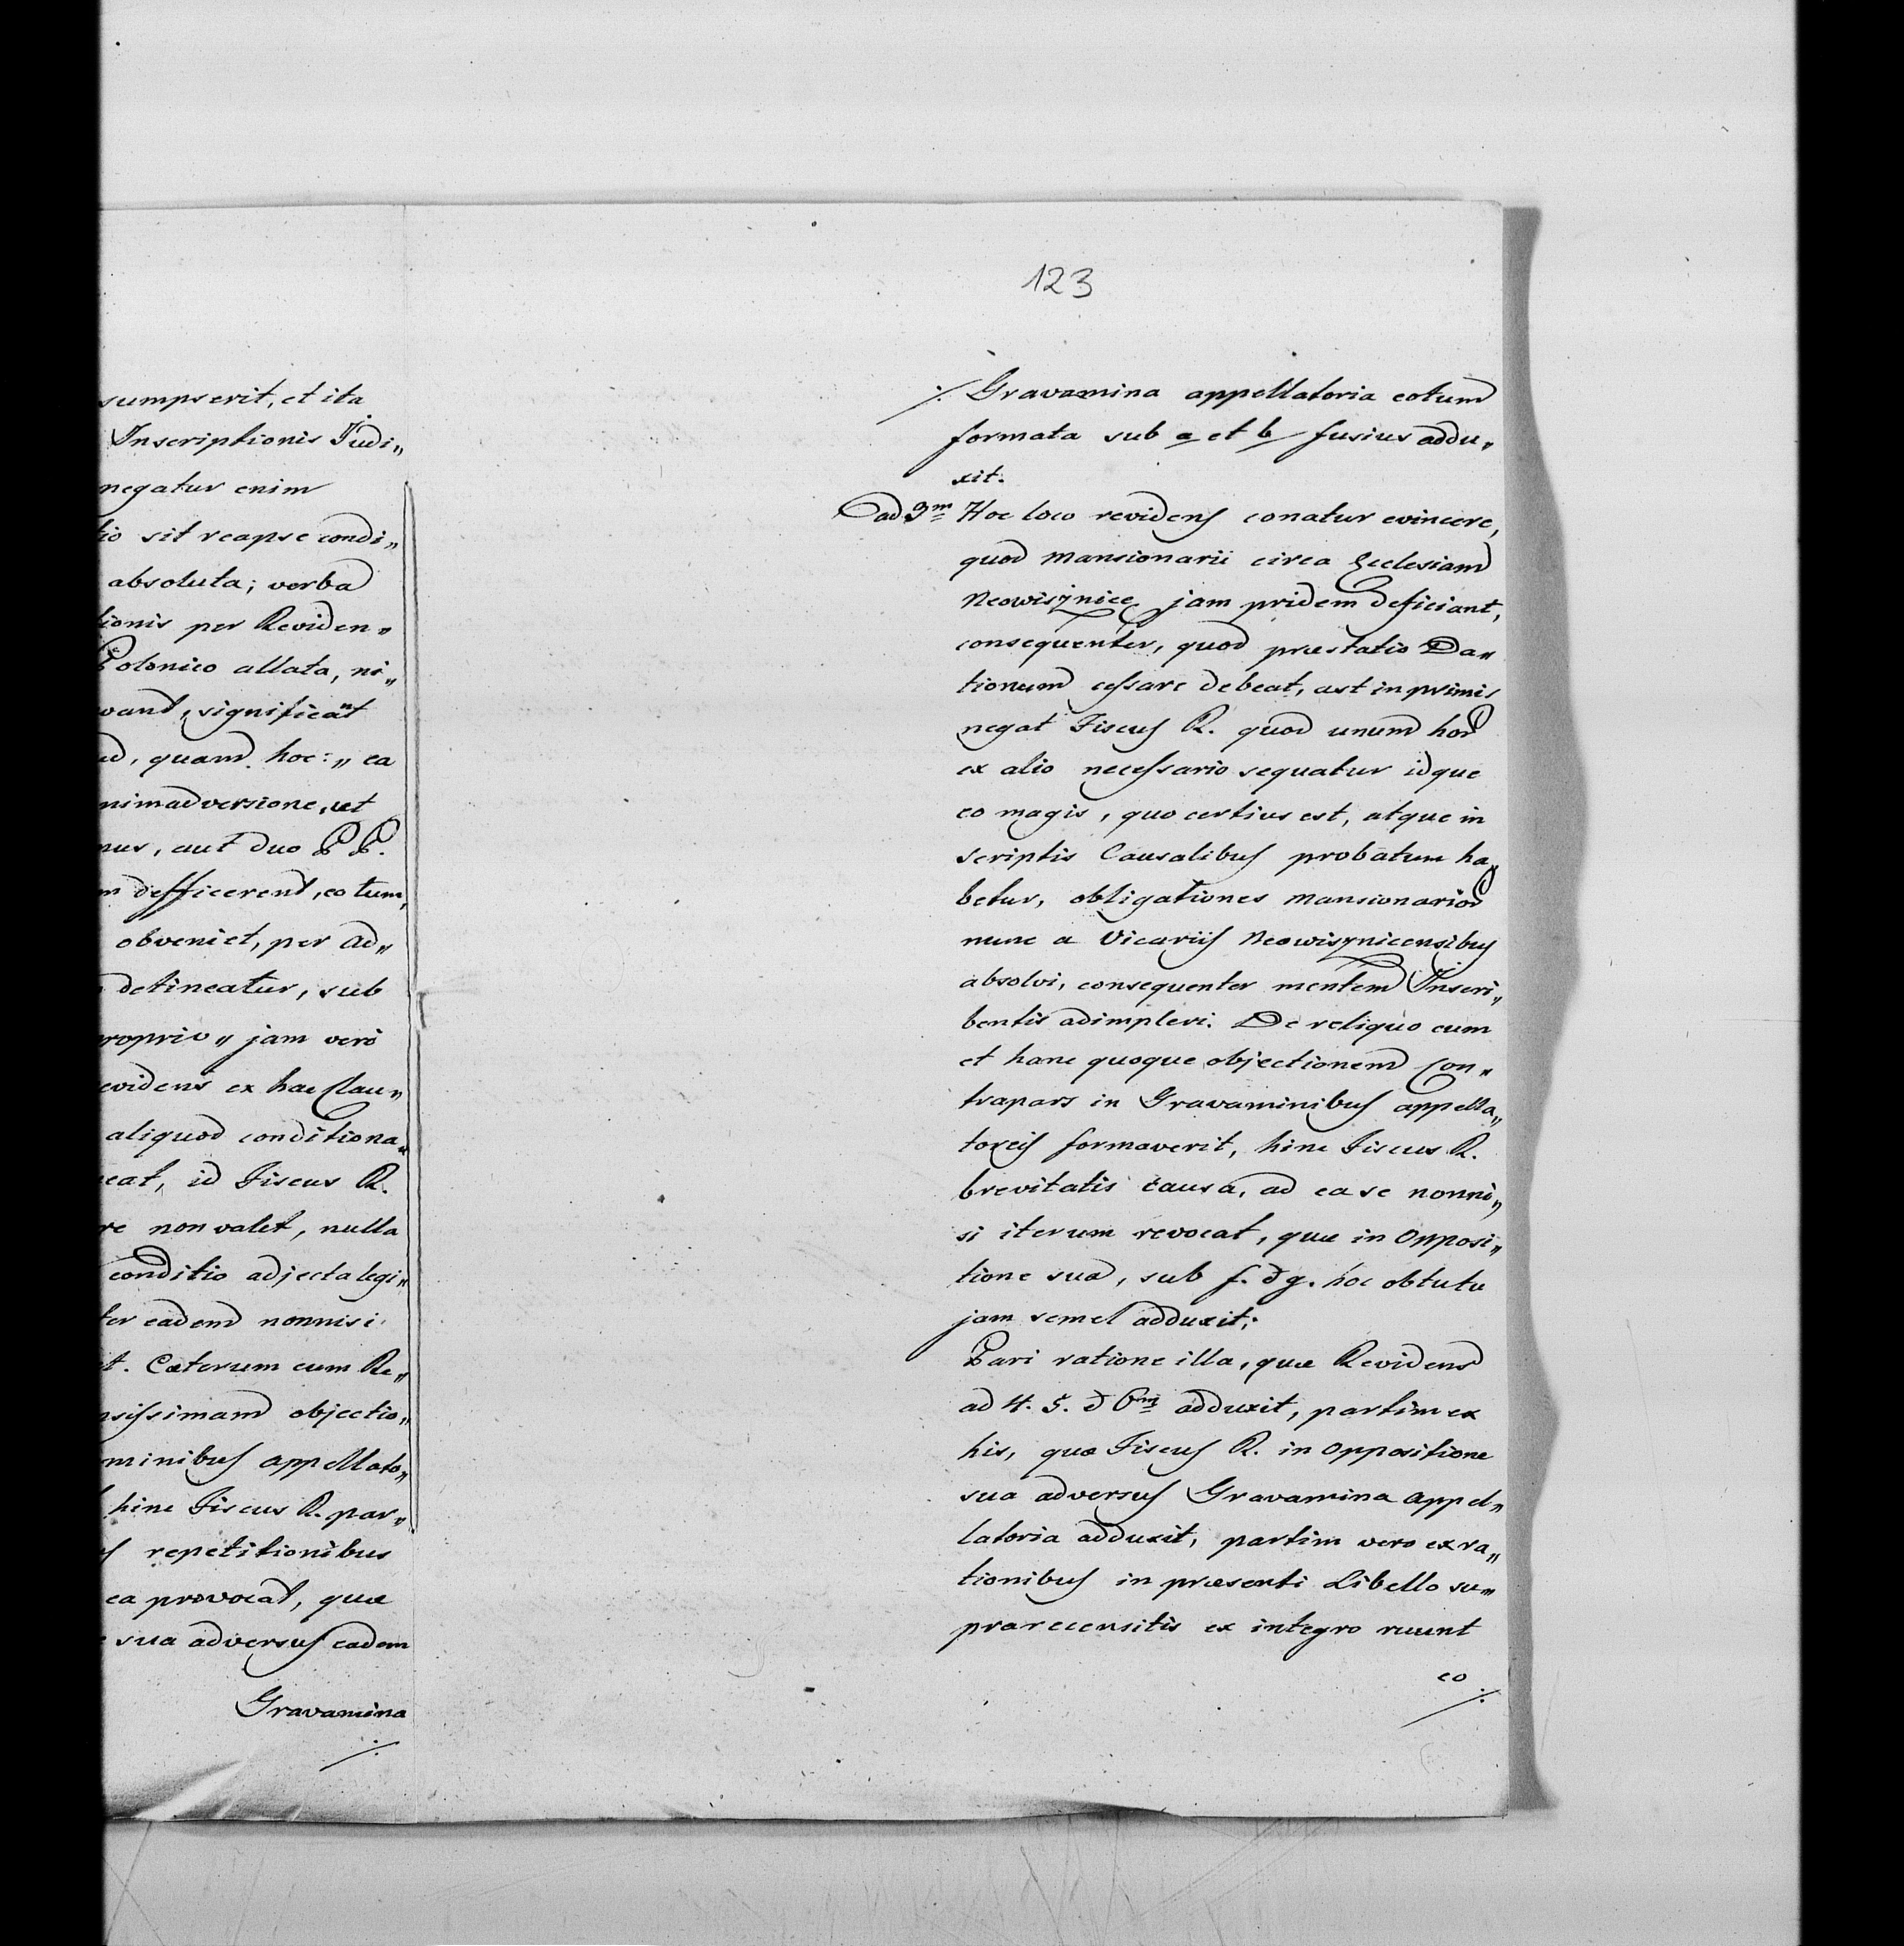 sumpserit, et ita
Inscriptionis Judi„
negatur enim
tio sit reapse condi„
absoluta; verba
tionis per Reviden„
Polonico allata, ni„
vant, significant
ud, quam hoc: „ ea
nimadversione, ut
nus, aut duo P P.
m defficerent, eo tum,
obveniet, per Ad„
detineatur, sub
proprio „ jam vero
evidens ex hac Clau„
aliquod conditiona„
neat, id Fiscus R.
re non valet, nulla
conditio adjecta legi„
ter eadem nonnisi
t. Cæterum cum Re„
nsissimam objectio„
minibus appellato„
hinc Fiscus R. par„
s repetitionibus
ea provocat, quæ
e sua adversus eadem
Gravamina
./.
123
./. Gravamina appellatoria eotum
formata sub a et b fusius addu„
xit.
ad 3m Hoc loco revidens conatur evincere,
quod Mansionarii circa Ecclesiam
Neowisznice jam pridem deficiant,
consequenter, quod præstatio Da„
tionum cessare debeat, ast inprimis
negat Fiscus R. quod unum hor
ex alio necessario sequatur idque
eo magis, quo certius est, atque in
scriptis Causalibus probatum ha„
betur, obligationes Mansionarior
nunc a Vicariis Neowisznicensibus
absolvi, consequenter mentem Inscri„
bentis adimpleri. De reliquo cum
et hanc quoque objectionem Con„
trapars in Gravaminibus appella„
toreis formaverit, hinc Fiscus R.
brevitatis causa, ad ea se nonni„
si iterum revocat, quæ in Opposi„
tione sua, sub f. & g. hoc obtutu
jam semel adduxit;
Pari ratione illa, quæ Revidens
ad 4. 5. & 6m adduxit, partim ex
his, quæ Fiscus R. in Oppositione
sua adversus Gravamina appel„
latoria adduxit, partim vero ex ra„
tionibus in præsenti Libello su„
prarecensitis ex integro ruunt
eo
./.